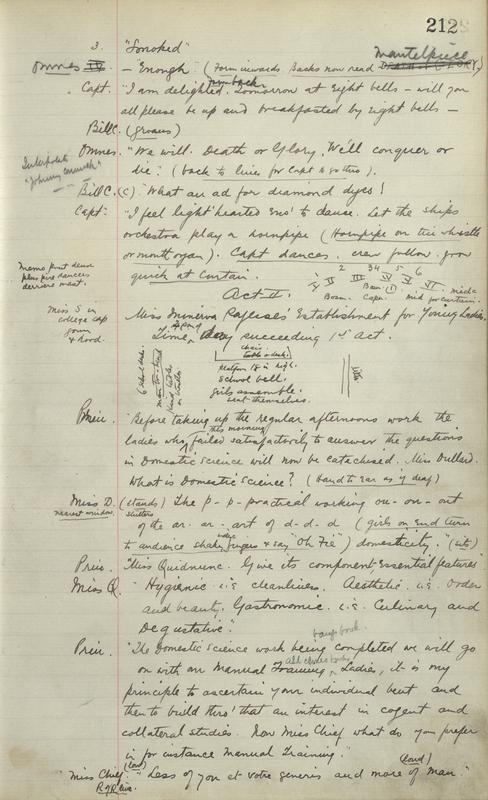 212
3. "Smoked"
mantelpiece
Omnes IV - "Enough" (Turn inwards Backs now read DEATH OR GLORY)
turn back
Capt. "I am delighted. Tomorrow at Eight bells - will you
all please be up and breakfasted by Eight bells -
Bill C. (groans)
Omnes. "We will. Death or Glory. We'll conquer or
die." (back to lines for Capt to go thro).
Interpolate
"Johnny
Bill C. (C) "What an ad for diamond dyes!
Capt. "I feel light hearted Eno' to dance. Let the ship's
orchestra play a hornpipe (Hornpipe on tin whistle
or mouth organ). Capt dances. crew follow. grow
quick at Curtain.
Memo
plus fire dancers
I II 2 III 3 4 IV 5 V 6 VI
Bosn. Capt. Mid for curtain.
Act II.
Miss S in
college cap
gown
& hood.
Miss Minerva Ragleses' Establishment for Young Ladies
Time, day succeeding 1st Act.
chair
table & desk
platform 18 in high.
School bell.
girls assemble.
seat themselves.
Prin. "Before taking up the regular afternoons work the
this morning
ladies who failed satisfactorily to answer the questions
in Domestic Science will now be catechised. Miss Dullard.
What is Domestic Science? (Hand to Ear as if deaf)
Miss D. (stands) The p- p- practical working ou- on- out
nearest window. stutters
of the ar. ar. art of d-d-d (girls on End turn
to audience shake index fingers & say "Oh Fie") domesticity." (sits)
Prin. "Miss Quidnunc. Give its component Essential features
Miss Q. "Hygienic i.e. cleanliness. Aesthetic i.e. Order
and beauty. Gastronomic i.e. Culinary and
Degustative."
bangs book.
Prin. "The Domestic Science work being completed we will go
All closes books
on with our Manual Training. Ladies, it is my
principle to ascertain your individual bent and
then to build thro' that an interest in cogent and
collateral studies. Now Miss Chief what do you prefer
in for instance Manual Training."
(low) (loud)
"Miss Chief. "Less of you et votre generis and more of Man."